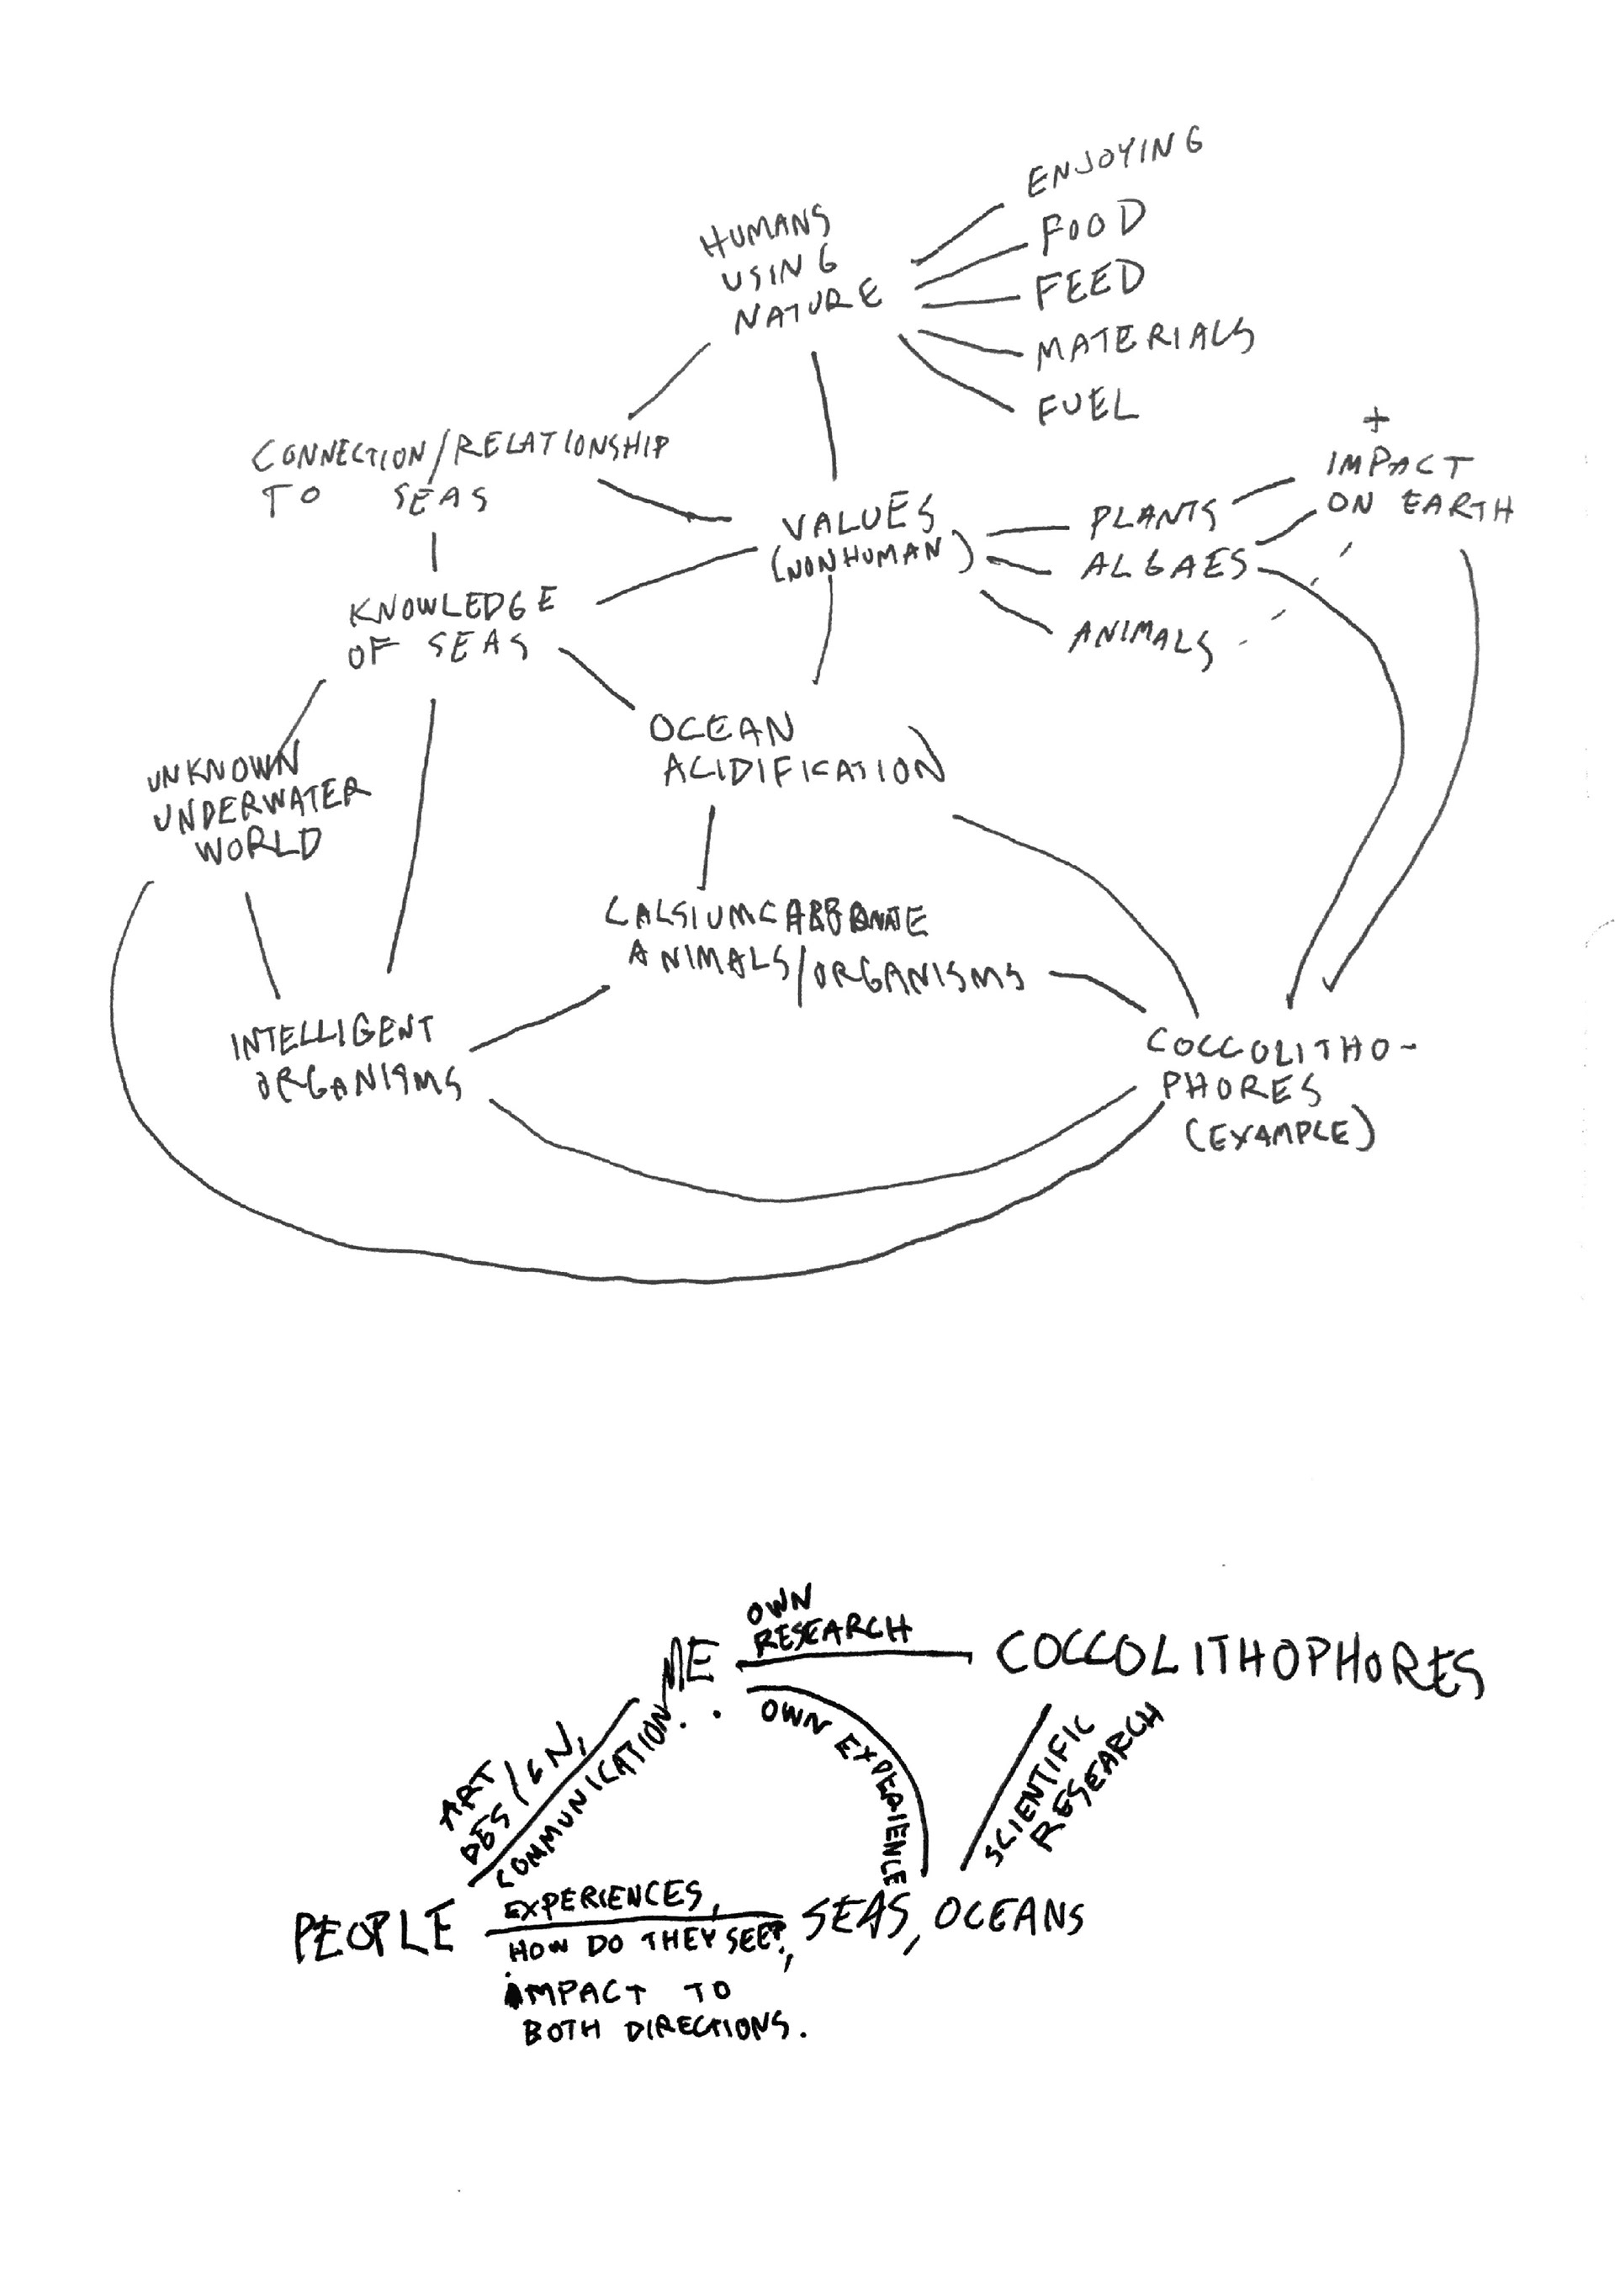 ENJOYING
FOOD
FEED
MATERIALS
FUEL
HUMANS
USING
NATURE
CONNECTION/RELATIONSHIP
TO SEAS
VALUES
(NONHUMAN)
PLANTS
ALGAES
ANIMALS
+
IMPACT
ON EARTH
KNOWLEDGE
OF SEAS
OCEAN
ACIDIFICATION
UNKNOWN
UNDERWATER
WORLD
CALSIUMCARBONATE
ANIMALS/ORGANISMS
INTELLIGENT
ORGANISMS
COCCOLITHO-
PHORES
(EXAMPLE)
OWN
RESEARCH
ME
COCCOLITHOPHORES
ART
DESIGN,
COMMUNICATION...
OWN EXPERIENCE
SCIENTIFIC
RESEARCH
PEOPLE
EXPERIENCES,
HOW DO THEY SEE?,
IMPACT TO
BOTH DIRECTIONS.
SEAS, OCEANS